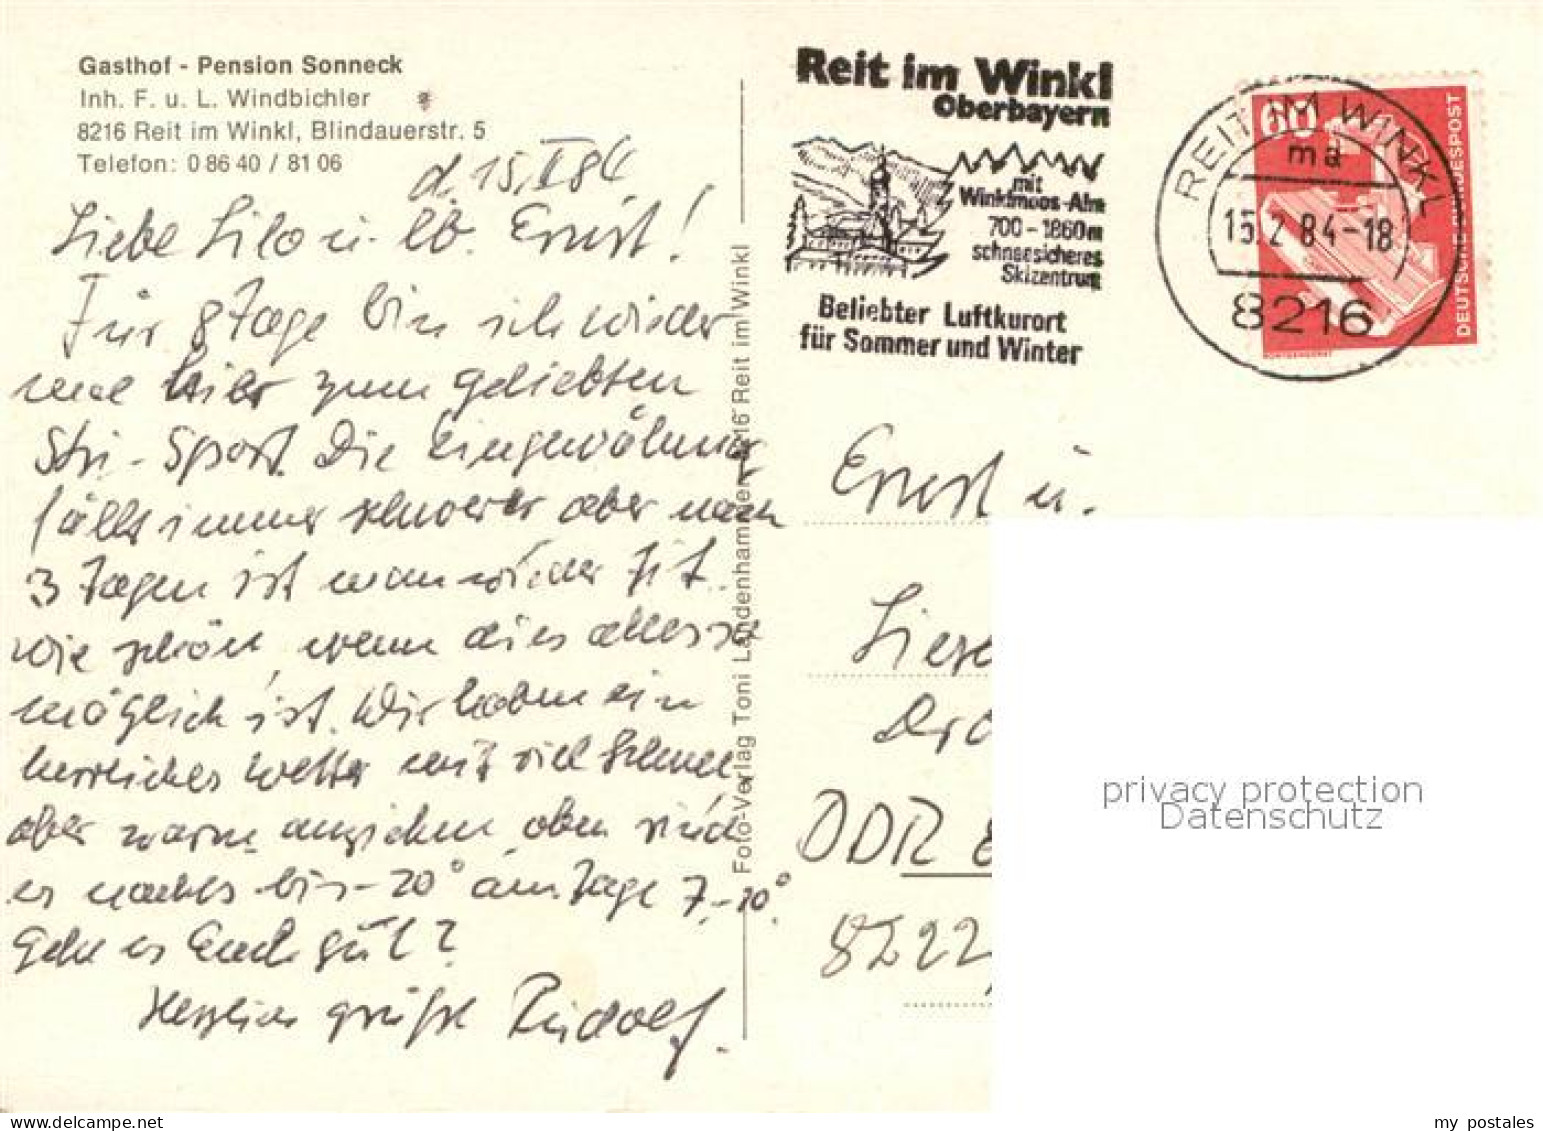 Gasthof - Pension Sonneck
Inh. F. u. L. Windbichler
8216 Reit im Winkl, Blindauerstr. 5
Telefon: 0 86 40 / 81 06
d. 15. II 84
Liebe Lilo u. lb. Ernst!
Für 8 Tage bin ich wieder
mal hier zum geliebten
Ski-Sport. Die Eingewöhnung
fällt immer schwerer aber nach
3 Tagen ist man wieder fit.
Wie schön, wenn dies alles so
möglich ist. Wir haben ein
herrliches Wetter mit viel Schnee,
aber warm anziehen, oben sind
es nachts bis -20° am Tage 7-10°
Geht es Euch gut?
Herzliche Grüße Rudolf.
Foto-Verlag Toni Landenhammer, 8216 Reit im Winkl
Reit im Winkl
Oberbayern
mit
Winklmoos-Alm
700-1860m
schneesicheres
Skizentrum
Beliebter Luftkurort
für Sommer und Winter
REIT IM WINKL
ma
15.2.84-18
8216
60
DEUTSCHE BUNDESPOST
Ernst u.
DDR
8222
privacy protection
Datenschutz
my postales